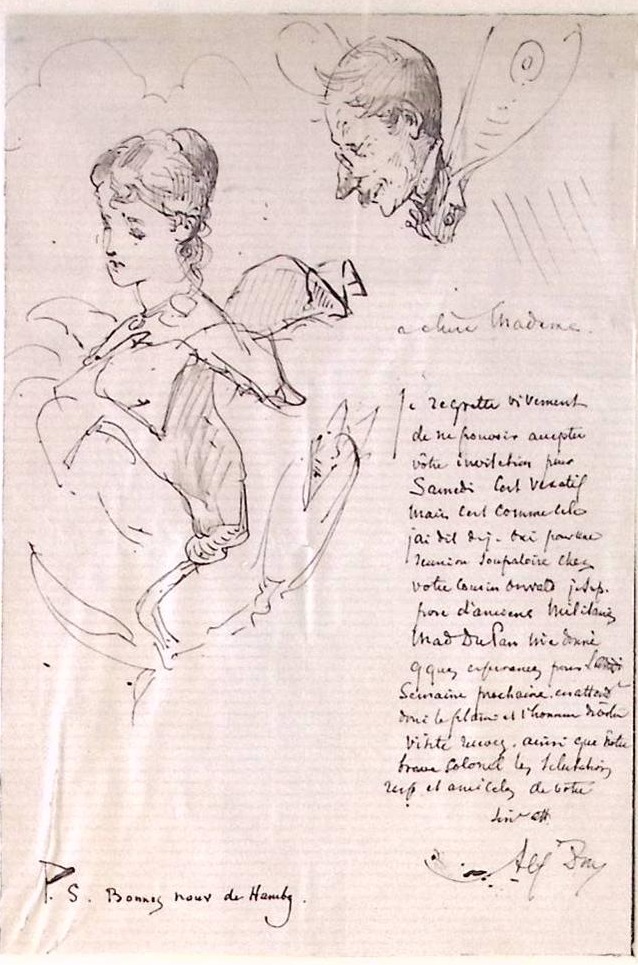 a chère Madame.
Je regrette vivement
de ne pouvoir accepter
vôtre invitation pour
Samedi C'est Vexatif
mais c'est comme cela
j'ai dit dej. oui pour une
reunion soupatoire chez
votre Cousin jesup.
pose d'anciens Militaires
Mad DuPan m'a donné
qques esperances pour
Semaine prochaine. en attend
donc le plaisir et l'honneur
visite recevez. ainsi que votre
brave Colonel les Salutations
resp. et amicales de votre
Alf
P. S. Bonnes nouv de Hambg.